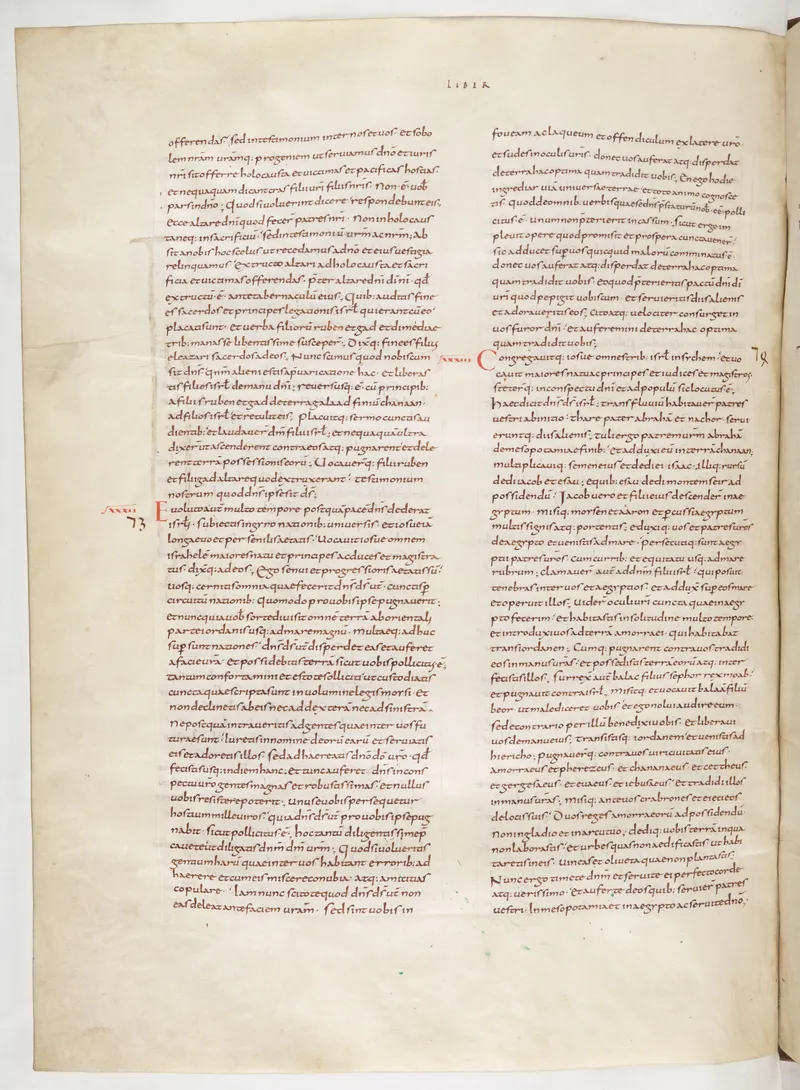 LIBER
offerendas. sed intestimonium inter nos et uos. et sobo
lem nram uramq; progeniem ut seruiamus dno et iuris
nri sit offerre holocausta et uictimas et pacificas hostias.
et nequaquam dicant cras filii uri filiis nris. Non ē uob
pars indno; Quod si uoluerint dicere respondebunt eis.
ecce altare dni quod fecer patres nri. Non in holocaus
ta neq; in sacrificiū. sed in testimoniū urm ac nrm; Ab
sit a nobis hoc scelus ut recedamus a dno et eius uestigia
relinquamus. extructo altari ad holocausta et sacri
ficia et uictimas offerendas. pter altare dni di nri. qd
extructū ē ante tabernaculū eius; Quib; auditis fine
es sacerdos et principes legationis isrł qui erant cū eo
placati sunt. et uerba filiorū ruben et gad et dimidiae
trib; manasse libentissime susceper; Dixq; finees filius
eleazari sacerdos ad eos; Nunc scimus quod nobiscum
sit dns. Qnm alieni estis a puaricatione hac. et liberas
tis filios isrł de manu dni; reuersusq; ē cū principib;
a filiis ruben et gad de terra galaad finiū chanaan.
ad filios isrł et retulit eis; Placuitq; sermo cunctis au
dientib; et laudauer dm filii isrł; et nequaquā ultra
dixer ut ascenderent contra eos atq; pugnarent et dele
rent terrā possessionis eorū; Uocauerq; filii ruben
et filii gad altare quod extruxerant. testimonium
nostrum quod dns ipse sit ds;
XXXII
73
Euoluto aut multo tempore postquā pacē dns dederat
isrłi. subiectis in gyro nationib; uniuersis. et iosue iā
longaeuo et persenilis aetatis. Uocauit iosue omnem
israhelē maioresq natu et principes ac duces et magistra
tus. dixq; ad eos; Ego senui et progressioris aetatis sū.
uosq; cernitis omnia quae fecerit dns ds ur cunctis p
circuitū nationib; quomodo pro uobis ipse pugnauerit;
et nunc quia uob sorte diuisit omnē terrā ab orientali
parte iordanis usq; ad mare magnū. multaeq; adhuc
supsunt nationes. dns ds ur disperdet eas et auferet
a facie ura. et possidebitis terrā sicut uobis pollicitus ē;
tantum confortamini et estote solliciti ut custodiatis
cuncta quae scripta sunt in uolumine legis mosi. et
non declinetis ab eis nec ad dextera nec ad sinistrā.
Ne postquā intraueritis ad gentes quae inter uos fu
turae sunt. iuretis in nomine deorū earū et seruiatis
eis et adoretis illos. sed adhaereatis dno do uro. qd
fecistis usq; in diem hanc; et tunc auferet dns in cons
pectu uro gentes magnas et robustissimas. et nullus
uobis resistere poterit; unus e uobis persequetur
hostiū mille uiros. quia dns ds ur pro uobis ipse pug
nabit. sicut pollicitus ē; hoc tantū diligentissime p
cauete ut diligatis dnm dm urm; Quod si uolueritis
gentium harū quae inter uos habitant errorib; ad
haerere et cum eis miscere conubia. atq; amicitias
copulare. Iam nunc scitote quod dns ds ur non
eas deleat ante faciem uram. sed sint uobis in
foueam ac laqueum et offendiculum ex latere uro.
et sudes in oculis uris. donec uos auferat atq; disperdat
de terra hac optima quam tradidit uobis; En ego hodie
ingredior uiā uniuersae terrae. et toto animo cognosce
tis. quod de omnib; uerbis quae se dns pstaturū nob; ē polli
citus ē. unum non pterierit incassum. sicut ergo im
pleuit opere quod promisit et prospera cuncta uener;
sic adducet sup uos quicquid malorū comminatus ē.
donec uos auferat atq; disperdat de terra hac optima
quam tradidit uobis. eo quod pterieritis pactū dni di
uri quod pepigit uobiscum. et seruieritis diis alienis
et adoraueritis eos; Cito atq; uelociter consurget in
uos furor dni. et auferemini de terra hac optima
quam tradidit uobis;
XXXIII
74
Congregauitq; iosue omnes trib; isrł in sychem. et uo
cauit maiores natu ac principes et iudices et magistros.
steterq; in conspectu dni et ad populū sic locutus ē;
Haec dicit dns ds isrł; trans fluuiū habitauer patres
uestri ab initio. thare pater abrahā et nachor. serui
eruntq; diis alienis; tuli ergo patrem urm abrahā
de mesopotamiae finib; et adduxi eū in terrā chanaan;
multiplicauiq; semen eius et dedi ei isaac; illiq; rursū
dedi iacob et esau; e quib; esau dedi montem seir ad
possidendū. Iacob uero et filii eius descender in ae
gyptum. misiq; mosen et aaron et pcussi aegyptum
multis signis atq; portentis; eduxiq; uos et patres uros
de aegypto et uenistis ad mare. persecutiq; sunt aegy
ptii patres uros. cum currib; et equitatu usq; ad mare
rubrum; clamauer aut ad dnm filii isrł. qui posuit
tenebras inter uos et aegyptios. et adduxit sup eos mare
et operuit illos; Uider oculi uri cuncta quae in aegy
pto fecerim. et habitastis in solitudine multo tempore.
et introduxi uos ad terrā amorraei. qui habitabat
trans iordanen; Cumq; pugnarent contra uos tradidi
eos in manus uras. et possedistis terrā eorū atq; inter
fecistis illos; surrexit aut balac filius sephor rex moab.
et pugnauit contra isrł; misitq; et uocauit balaā filiū
beor. ut malediceret uobis et ego nolui audire eum.
sed e contrario per illū benedixi uobis. et liberaui
uos de manu eius; Transistisq; iordanem et uenistis ad
hiericho; pugnauerq; contra uos uiri ciuitatis eius.
amorraeus et pherezeus. et chananeus et cettheus.
et gergeseus et euaeus. et iebuseus. et tradidi illos
in manus uras; misiq; ante uos crabrones et eieci eos
de locis suis. Duos reges amorraeorū ad possidendū.
Non in gladio et in arcu tuo; dediq; uobis terrā in qua
non laborastis. et urbes quas non aedificastis ut habi
taretis in eis. uineas et oliueta quae non plantastis;
Nunc ergo timete dnm et seruite ei perfecto corde
atq; uerissimo. et auferte deos quib; seruier patres
uestri. in mesopotamia et in aegypto ac seruite dno;